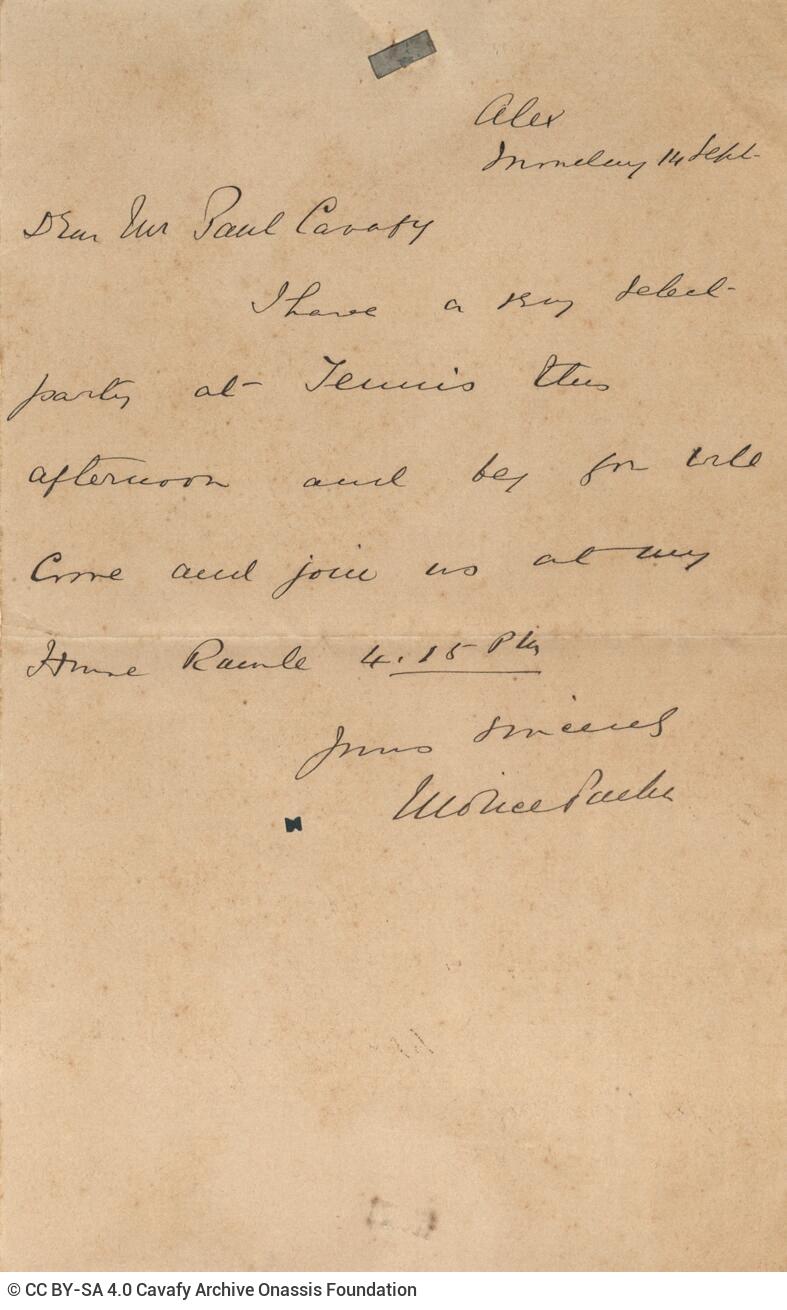 Alex
Monday 14 Sept.
Dear Mr Paul Cavafy
I have a very select
party at Tennis this
afternoon and beg you will
Come and join us at my
House Ramle 4.15 PM
Yours sincerely
© CC BY-SA 4.0 Cavafy Archive Onassis Foundation